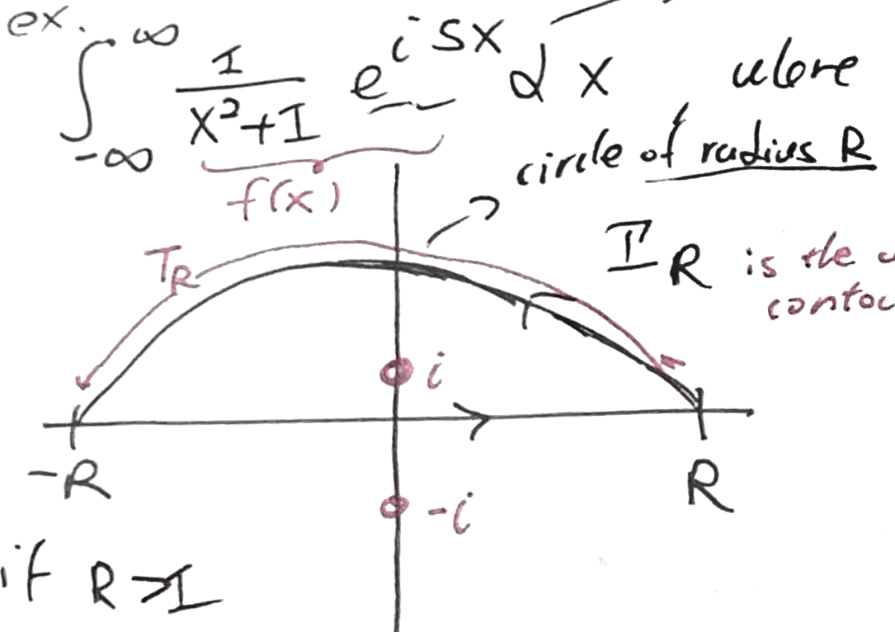 ex. ∫_{-∞}^{∞} \frac{1}{x²+1} e^{isx} dx where
f(x)
circle of radius R
T_R
Γ_R is the
i
-R
R
-i
if R>1